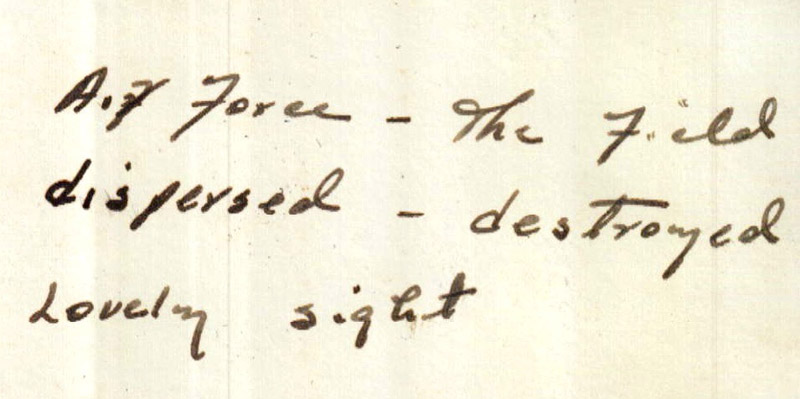 Air Force - The Field
dispersed - destroyed
Lovely sight